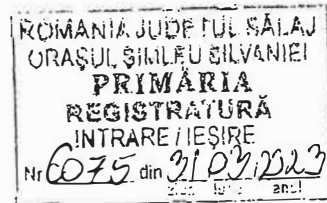 ROMANIA JUDEȚUL SĂLAJ
ORAȘUL ȘIMLEU SILVANIEI
PRIMĂRIA
REGISTRATURĂ
INTRARE / IEȘIRE
Nr 6075 din 31 03 2023
ziua luna anul